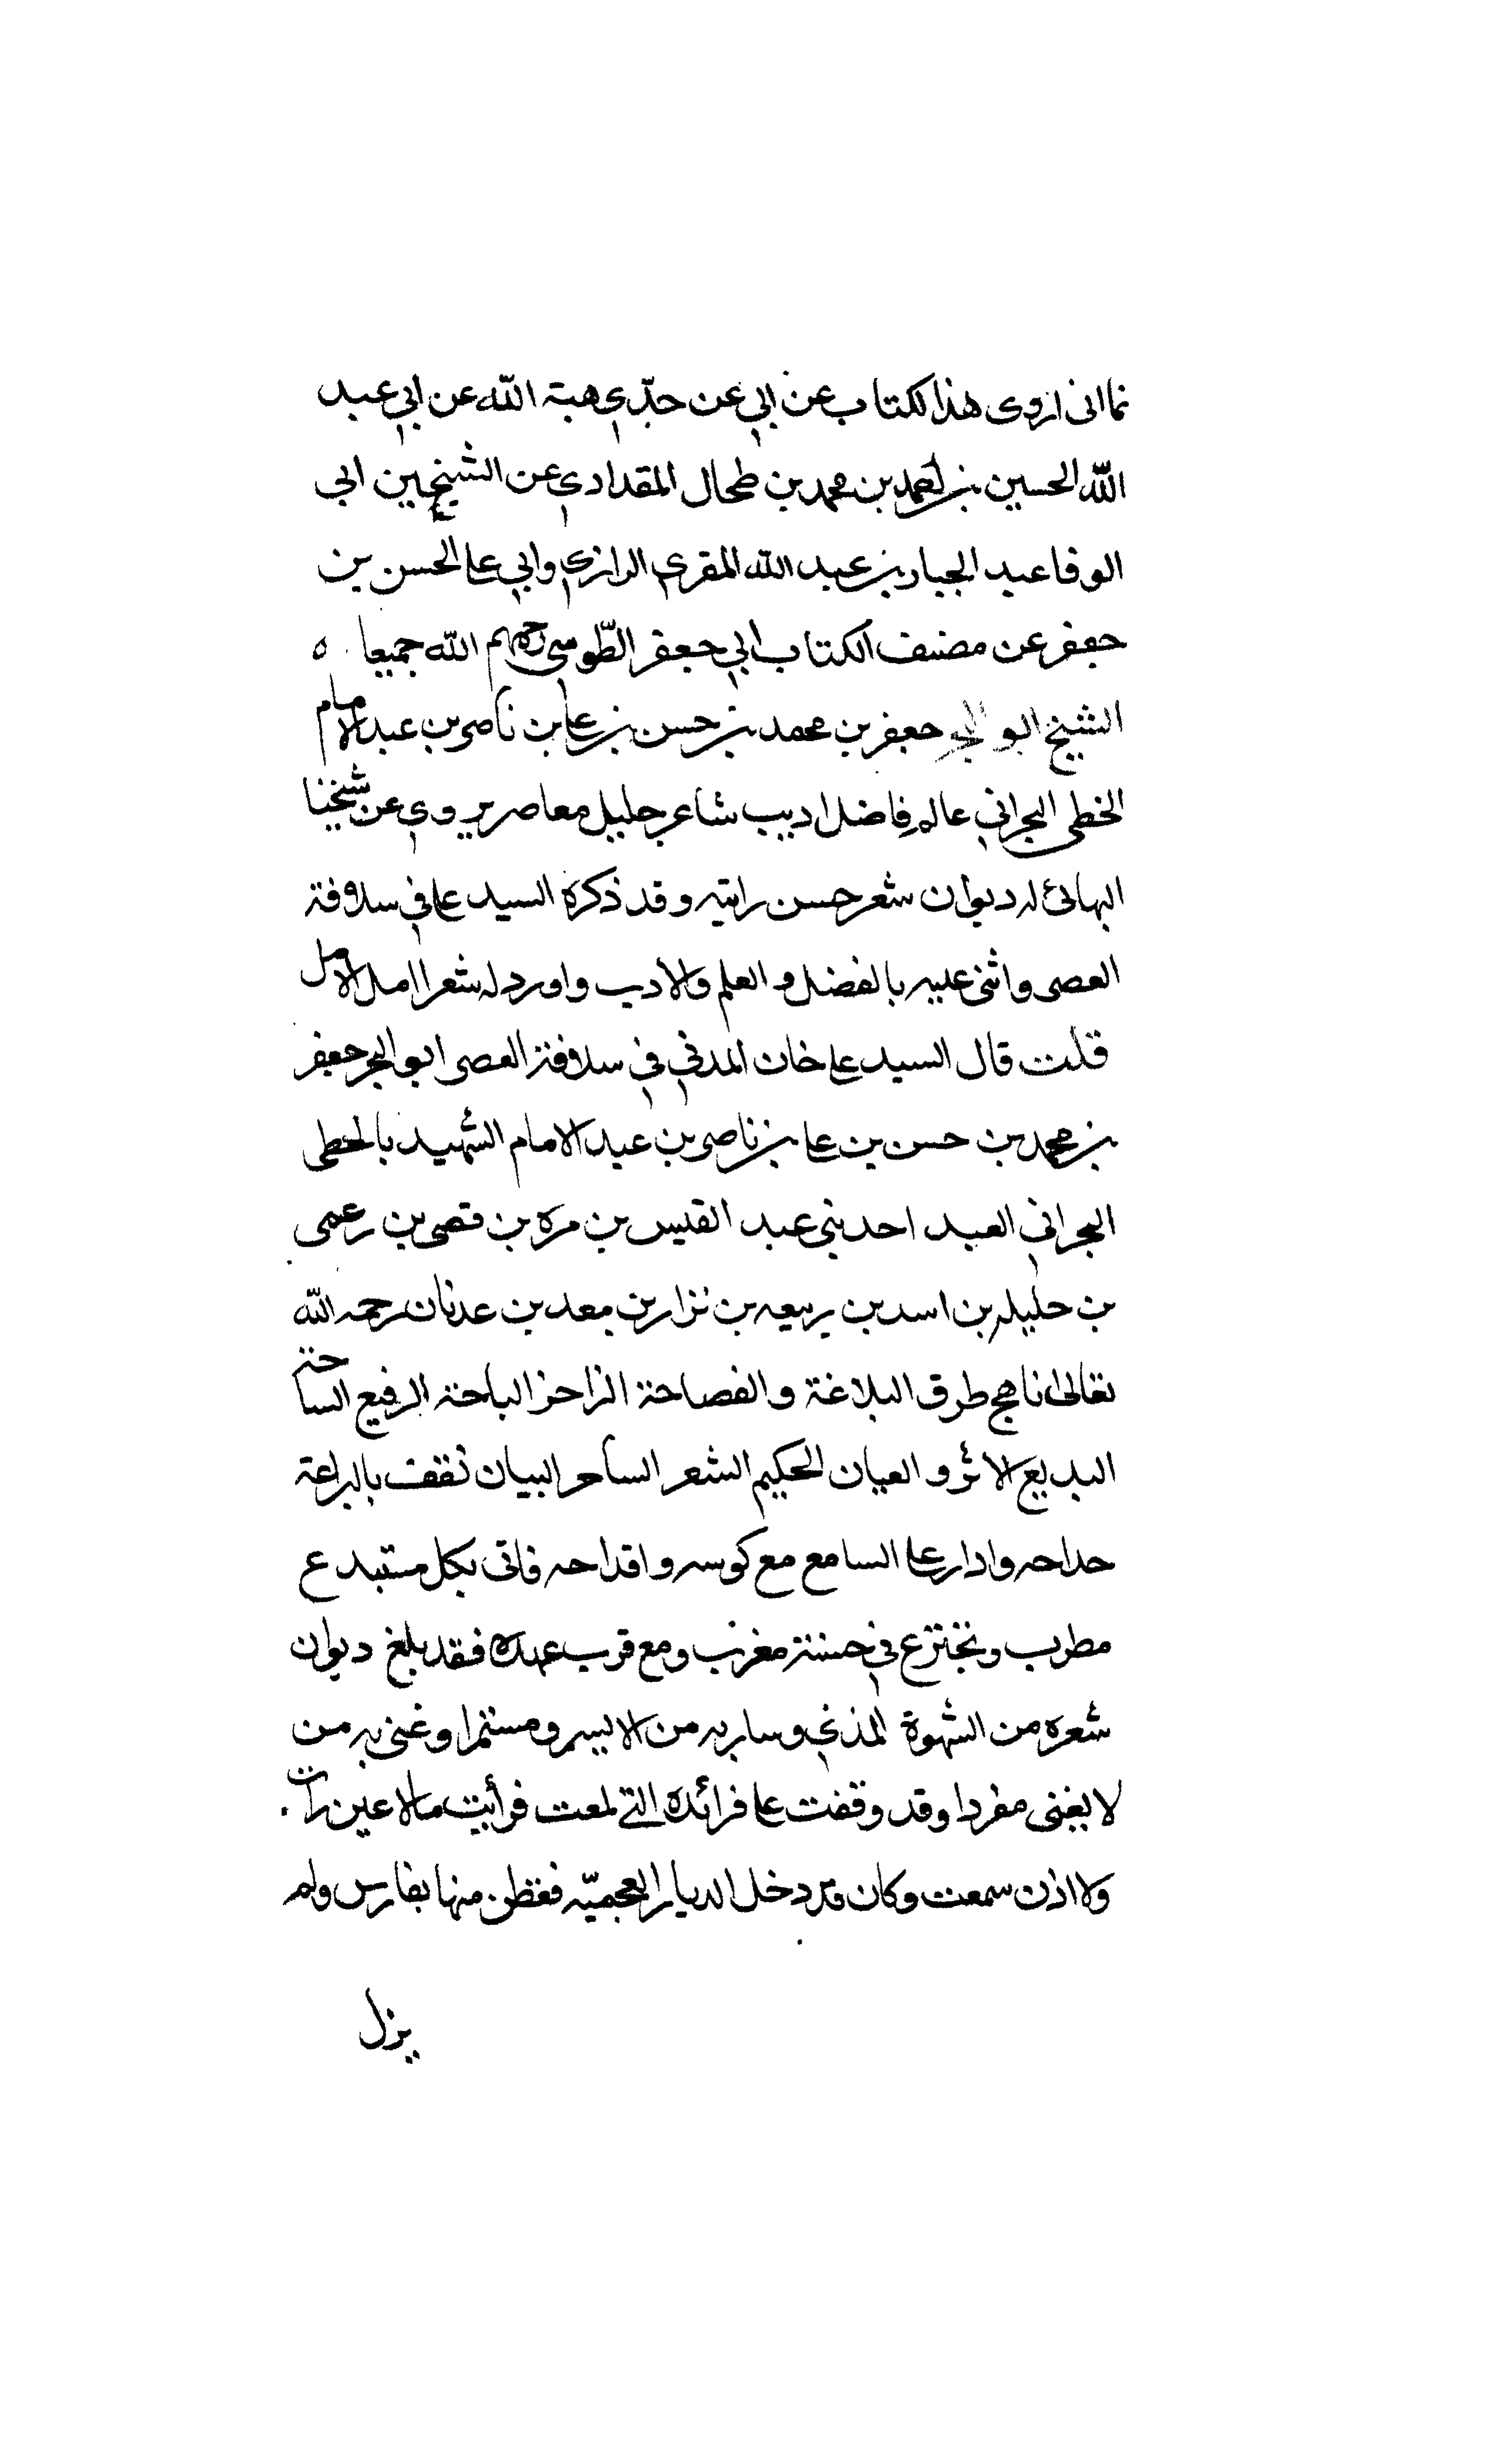 فاني اروى هذا الكتاب عن ابي عن جدّي هبة الله عن ابي عبد
الله الحسين بن احمد بن محمد بن طحال المقدادي عن الشيخين ابي
الوفا عبد الجبار بن عبد الله المقري الرازي وابي علي الحسن بن
جعفر عن مصنف الكتاب ابي جعفر الطّوسي رحمهم الله جميعا ه
الشيخ ابو البحر جعفر بن محمد بن حسن بن علي بن ناصر بن عبد الامام
الخطي البحراني عالم فاضل اديب شاعر جليل معاصر يروي عن شيخنا
البهائي له ديوان شعر حسن رايته وقد ذكره السيد علي في سلافة
العصر واثنى عليه بالفضل و العلم والادب واورد له شعرا امل الامل
قلت قال السيد علي خان المدني في سلافة العصر ابو البحر جعفر
بن محمد بن حسن بن علي بن ناصر بن عبد الامام الشهيد بالخطي
البحراني العبد احد بني عبد القيس بن مره بن قصى بن رعمى
بن جليله بن اسد بن ربيعه بن نزار بن معد بن عدنان رحمه الله
تعالى ناهج طرق البلاغة والفصاحة الزاخر الباحة الرفيع الساحة
البديع الاثر و العيان الحكيم الشعر الساحر البيان ثقف بالبراعة
حداحه وادار علي السامع مع كوسه واقداحه فاتى بكل مستبدع
مطرب ونخترع في حسنة مغرب ومع قرب عهده فقد بلغ ديوان
شعره من الشهوة المذي وسار به من لا يسر ومستمرا وغنى به من
لا يغنى مفردا وقد وقفت علي فرائده التي لمعت فرأيت مالا عين رات
ولا اذن سمعت وكان قد دخل الديار العجميّه فقطن منها بفارس ولم
يزل